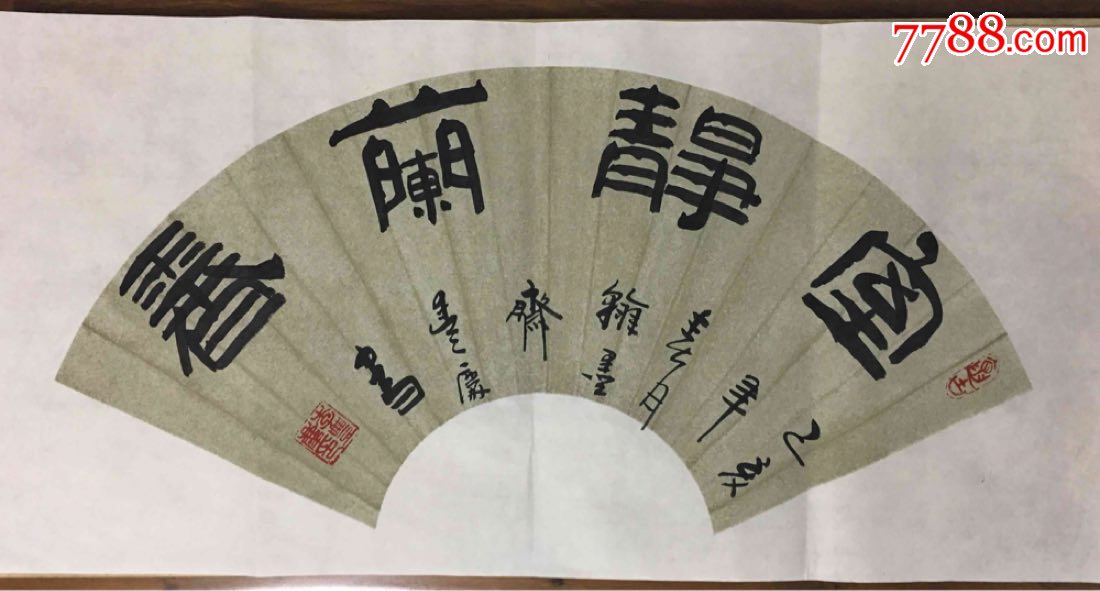 7788.com
室靜蘭香
乙亥
年
月
翰墨
齋
書